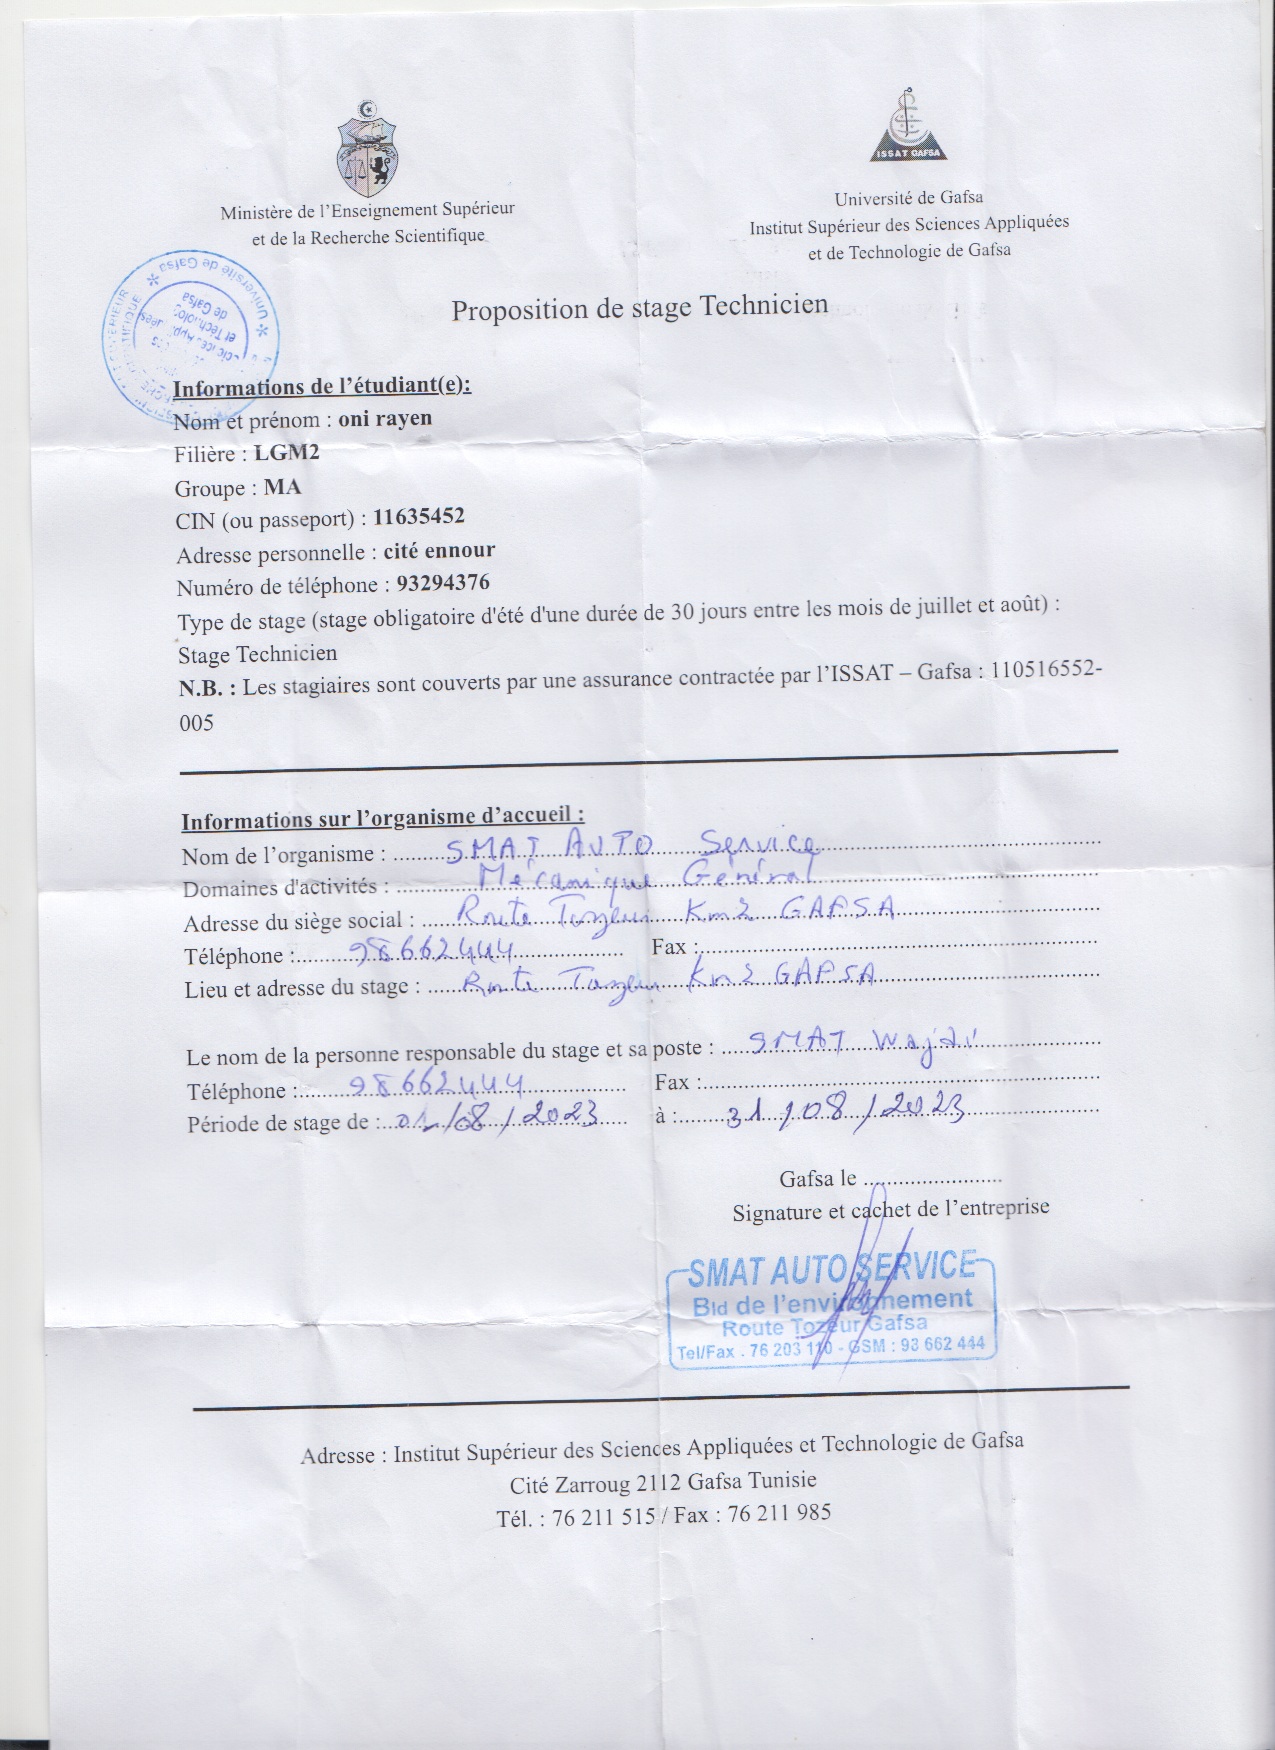 ISSAT GAFSA
Ministère de l'Enseignement Supérieur
et de la Recherche Scientifique
Université de Gafsa
Institut Supérieur des Sciences Appliquées
et de Technologie de Gafsa
Université de Gafsa
et Technolog
de Gafsa
Proposition de stage Technicien
Informations de l'étudiant(e):
Nom et prénom : oni rayen
Filière : LGM2
Groupe : MA
CIN (ou passeport) : 11635452
Adresse personnelle : cité ennour
Numéro de téléphone : 93294376
Type de stage (stage obligatoire d'été d'une durée de 30 jours entre les mois de juillet et août) :
Stage Technicien
N.B. : Les stagiaires sont couverts par une assurance contractée par l'ISSAT – Gafsa : 110516552-
005
Informations sur l'organisme d'accueil :
Nom de l'organisme : SMAT AUTO Service
Domaines d'activités : Mécanique Général
Adresse du siège social : Route Tozeur Km2 GAFSA
Téléphone : 98662444 Fax :
Lieu et adresse du stage : Route Tozeur Km2 GAFSA
Le nom de la personne responsable du stage et sa poste : SMAT Wajdi
Téléphone : 98662444 Fax :
Période de stage de : 01/08/2023 à : 31/08/2023
Gafsa le
Signature et cachet de l'entreprise
SMAT AUTO SERVICE
Bld de l'environnement
Route Tozeur Gafsa
Tel/Fax . 76 203 110 - GSM : 93 662 444
Adresse : Institut Supérieur des Sciences Appliquées et Technologie de Gafsa
Cité Zarroug 2112 Gafsa Tunisie
Tél. : 76 211 515 / Fax : 76 211 985